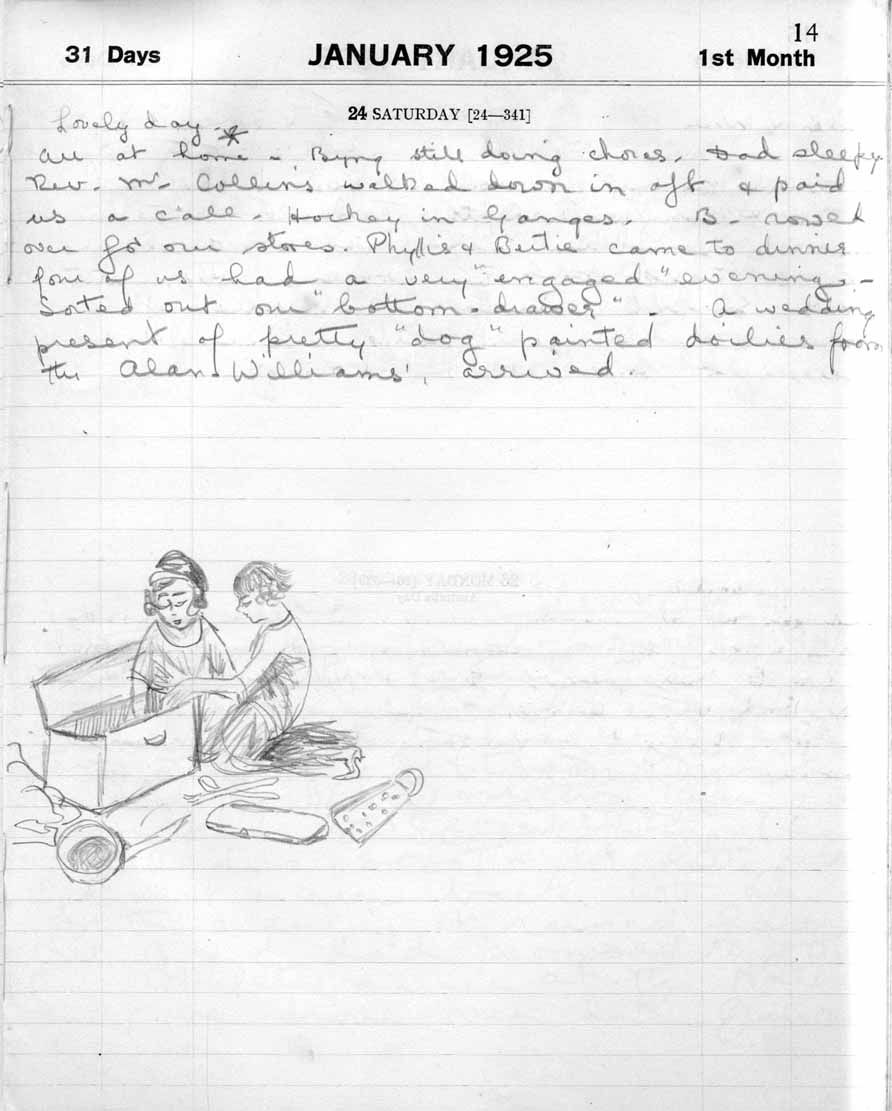 14
31 Days JANUARY 1925 1st Month
24 SATURDAY [24—341]
Lovely day.
All at home - Byng still doing chores. Dad sleepy.
Rev. Mr. Collins walked down in aft & paid
us a call. Hockey in Ganges. B. rowed
over for our stores. Phyllis & Bertie came to dinner
four of us had a very "engaged" evening -
Sorted out our "bottom-drawer" - A wedding
present of pretty "dog" painted doilies from
the Alan Williams', arrived.